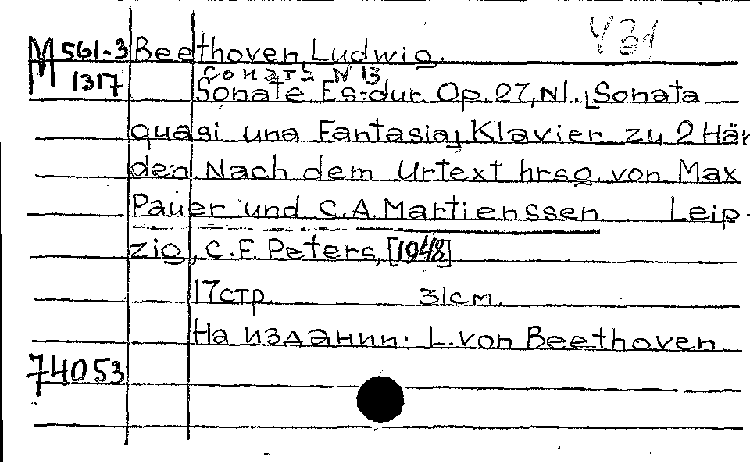 У31
М 561-3 Beethoven, Ludwig.
1317 Соната N 13
Sonate Es-dur Op. 27, N1. [Sonata
quasi una Fantasia] Klavier zu 2 Hän
den. Nach dem Urtext hrsg. von Max
Pauer und C.A. Martienssen Leip-
zig, C.F. Peters, [1948]
17 стр. 31 см.
На издании: L. von Beethoven
74053